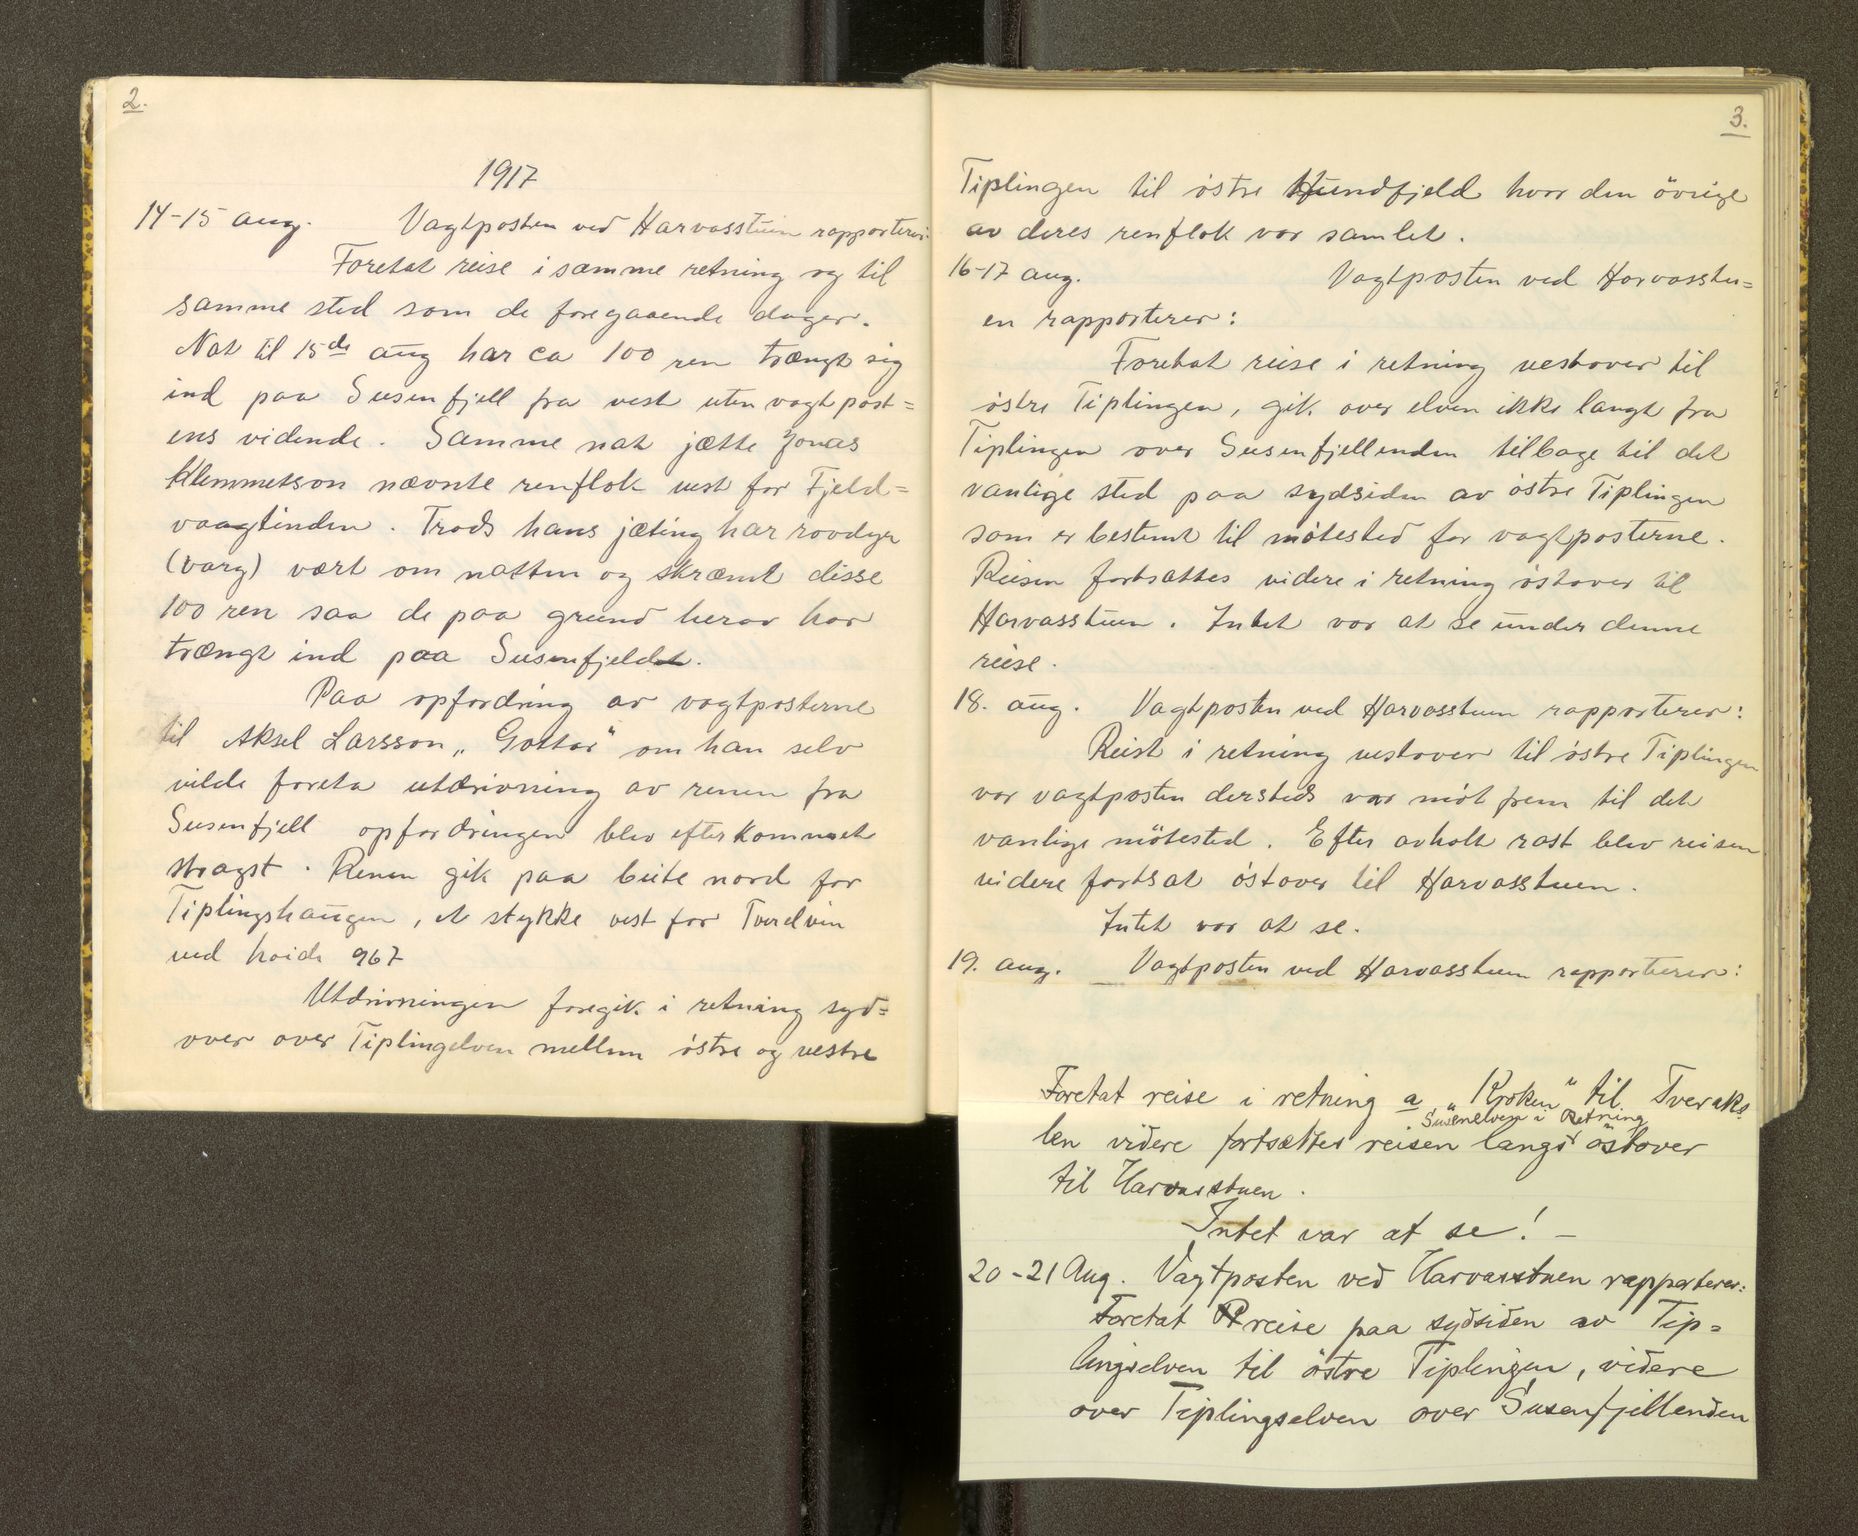 2.
1917
14-15 aug. Vagtposten ved Harvasstuen rapporterer:
Foretat reise i samme retning og til
samme sted som de foregaaende dager.
Nat til 15de aug har ca 100 ren trængt sig
ind paa Susenfjell fra vest uten vagtpost=
ens vidende. Samme nat jætte Jonas
Klemmetson nævnte renflok vest for Fjeld=
vaagtinden. Trods hans jæting har rovdyr
(varg) vært om natten og skræmt disse
100 ren saa de paa grund herav har
trængt ind paa Susenfjeldet.
Paa opfordring av vagtposterne
til Aksel Larsson „Gottar" om han selv
vilde foreta utdrivning av renen fra
Susenfjell opfordringen blev efterkommet
stragst. Renen gik paa beite nord for
Tiplingshaugen, et stykke vest for Tverelvin
ved høide 967
Utdrivningen foregik i retning syd=
over over Tiplingelven mellem östre og vestre
3.
Tiplingen til östre Hundfjeld hvor den övrige
av deres renflok var samlet.
16-17 aug. Vagtposten ved Harvasstu=
en rapporterer:
Foretat reise i retning vestover til
östre Tiplingen, gik over elven ikke langt fra
Tiplingen over Susenfjellenden tilbage til det
vanlige sted paa sydsiden av östre Tiplingen
som er bestemt til mötested for vagtposterne.
Reisen fortsattes videre i retning östover til
Harvasstuen. Intet var at se under denne
reise.
18. aug. Vagtposten ved Harvasstuen rapporterer:
Reist i retning vestover til östre Tiplingen
var vagtposten dersteds var möt frem til det
vanlige mötested. Efter avholt rast blev reisen
videre fortsat östover til Harvasstuen.
Intet var at se.
19. aug. Vagtposten ved Harvasstuen rapporterer:
Foretat reise i retning a „Kroken" til Tveraks
Susenelven i Retning
len videre fortsættes reisen langs östover
til Harvasstuen.
Intet var at se! –
20-21 Aug. Vagtposten ved Harvasstuen rapporterer:
Foretat reise paa sydsiden av Tip=
lingselven til östre Tiplingen, videre
over Tiplingselven over Susenfjellenden